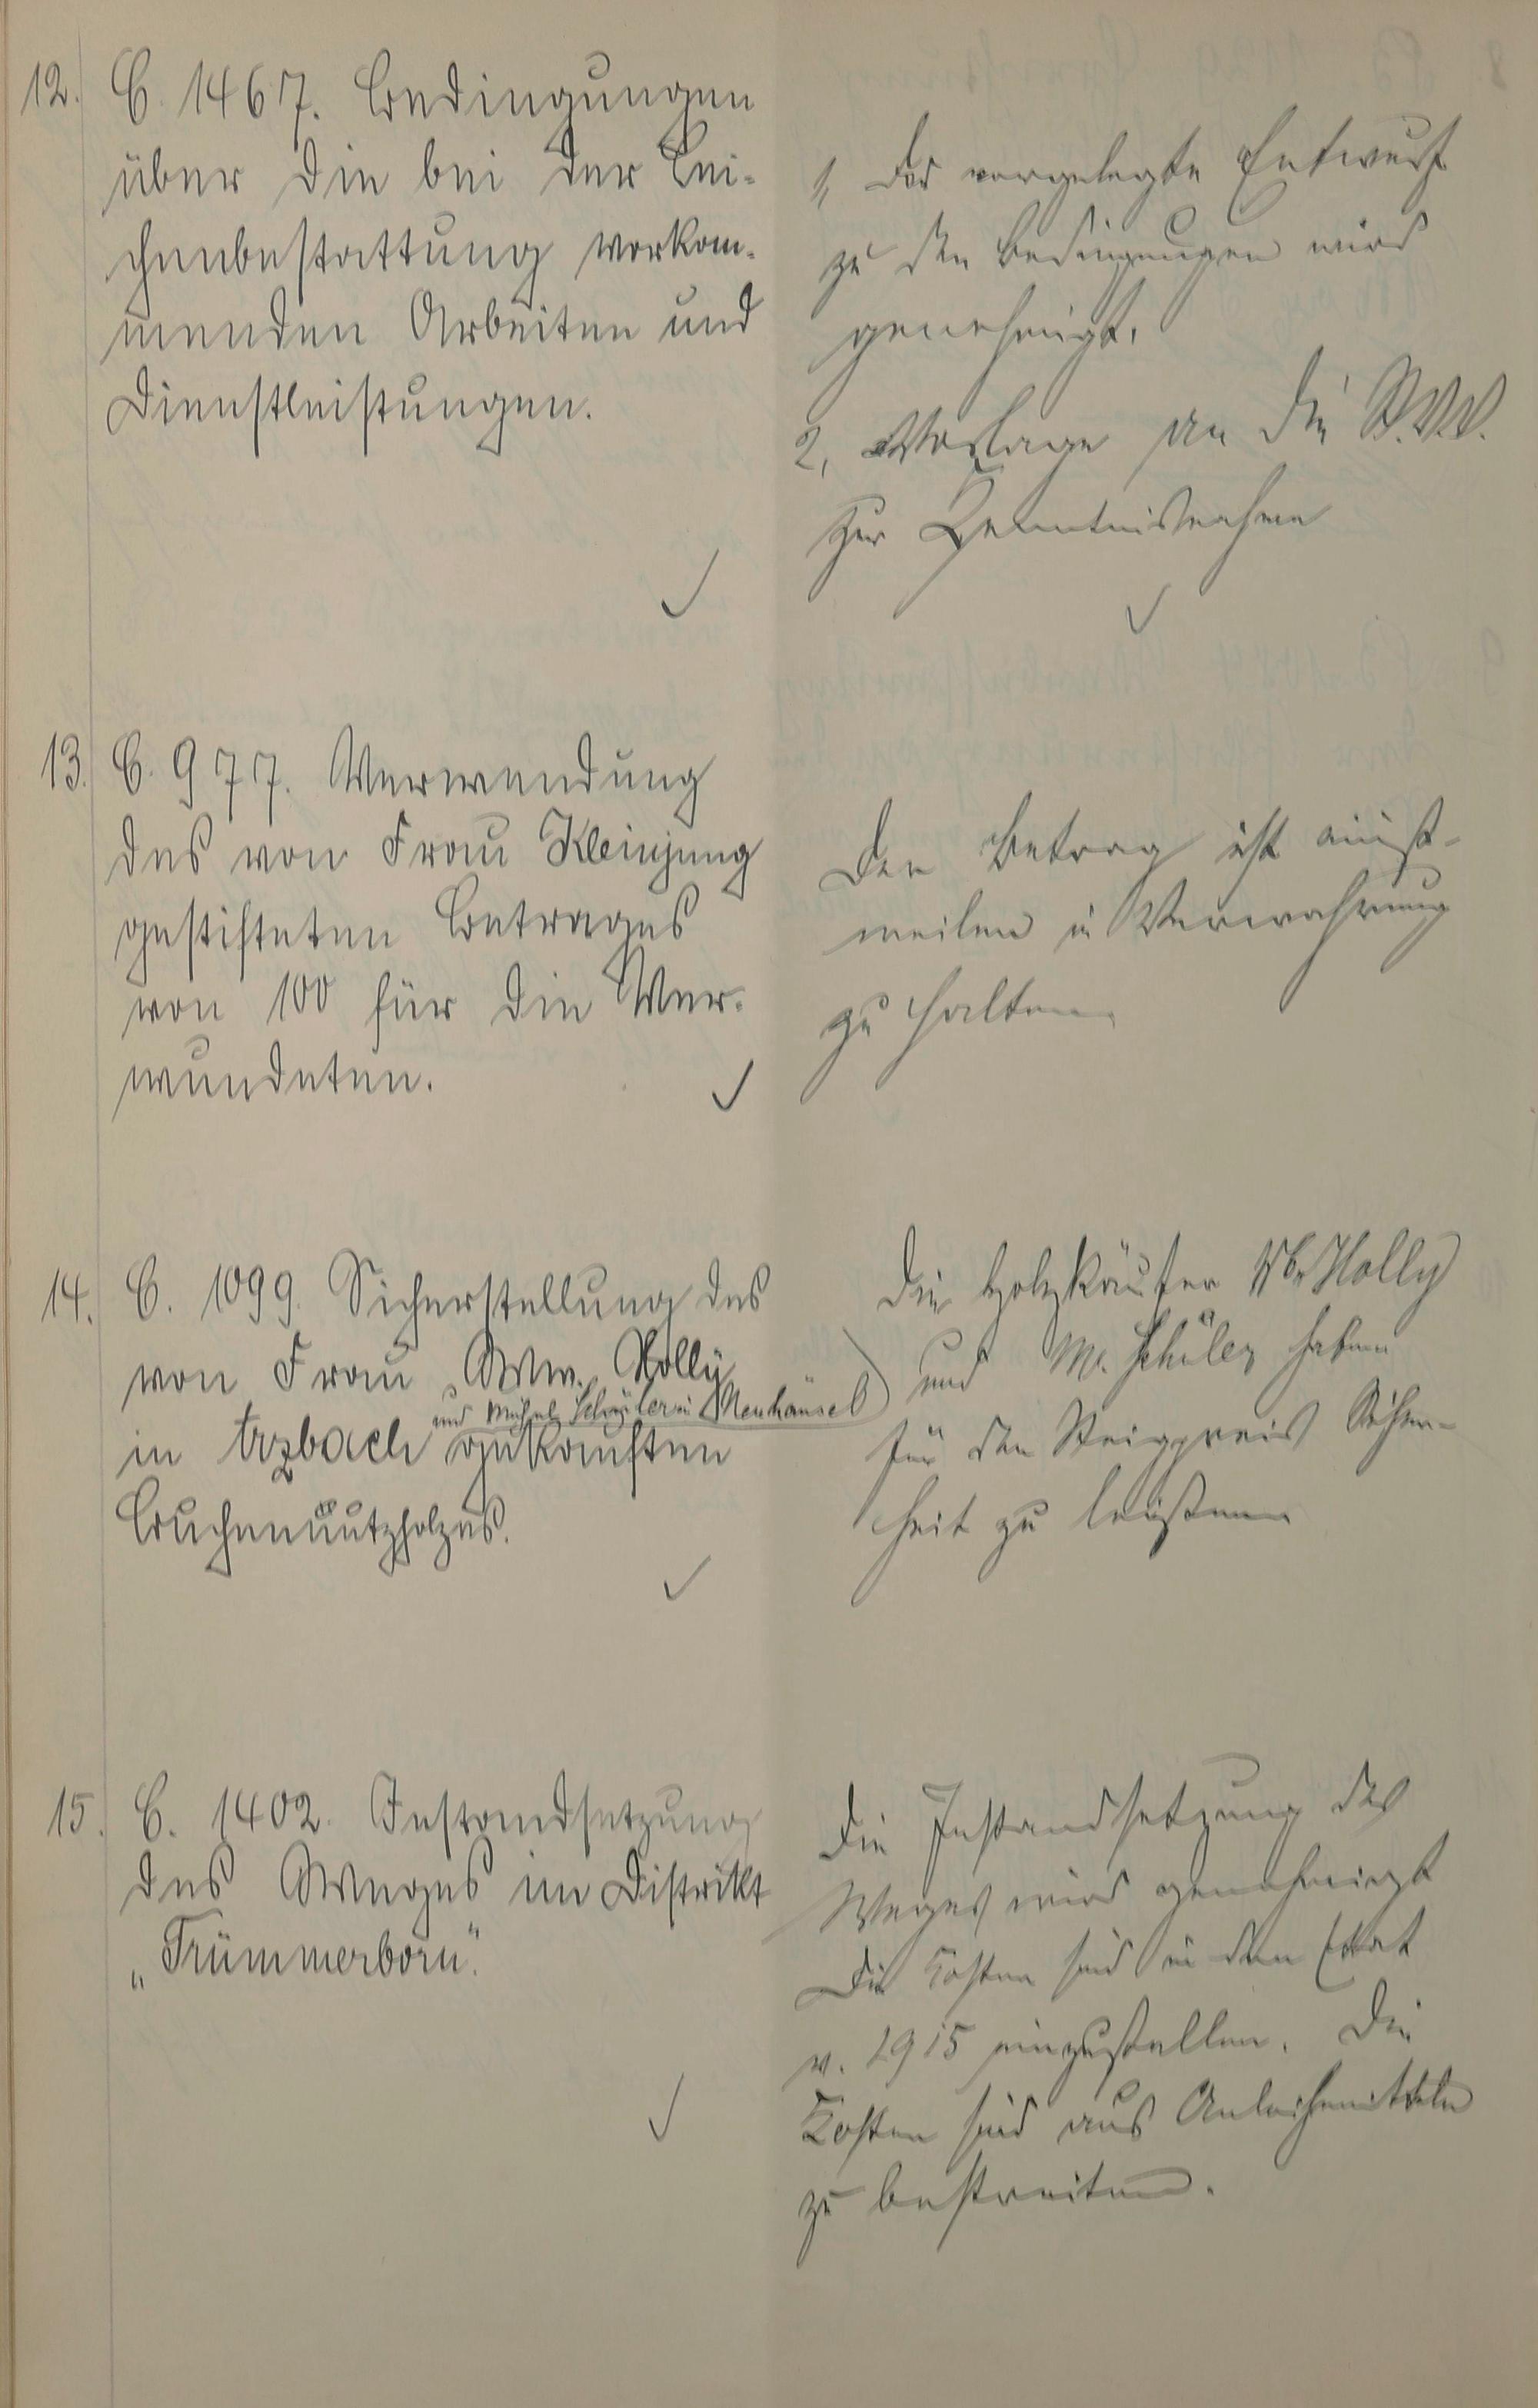 12. C. 1467. Bedingungen
über die bei der Lei-
chenbestattung vorkom-
menden Arbeiten und
Dienstleistungen.
1, Der vorgelegte Entwurf
zu den Bedingungen wird
genehmigt.
2, Vorlage an die St.V.V.
zur Kenntnisnahme
13. C. 977. Verwendung
des von Frau Kleinjung
gestifteten Betrages
von 100 für die Ver-
wundeten.
Der Betrag ist einst-
weilen in Verwahrung
zu halten
14. C. 1099. Sicherstellung des
von Frau Ww. Holly
und Michel Schüler in Neuhäusel
in Arzbach gekauften
Buchennutzholzes.
Die Holzkäufer Ww Holly
und M. Schüler haben
für den Steigpreis Sicher-
heit zu leisten
15. C. 1402. Instandsetzung
des Weges im Distrikt
„Trümmerborn".
Die Instandsetzung des
Weges wird genehmigt
Die Kosten sind in den Etat
v. 1915 einzustellen. Die
Kosten sind aus Anleihemitteln
zu bestreiten.